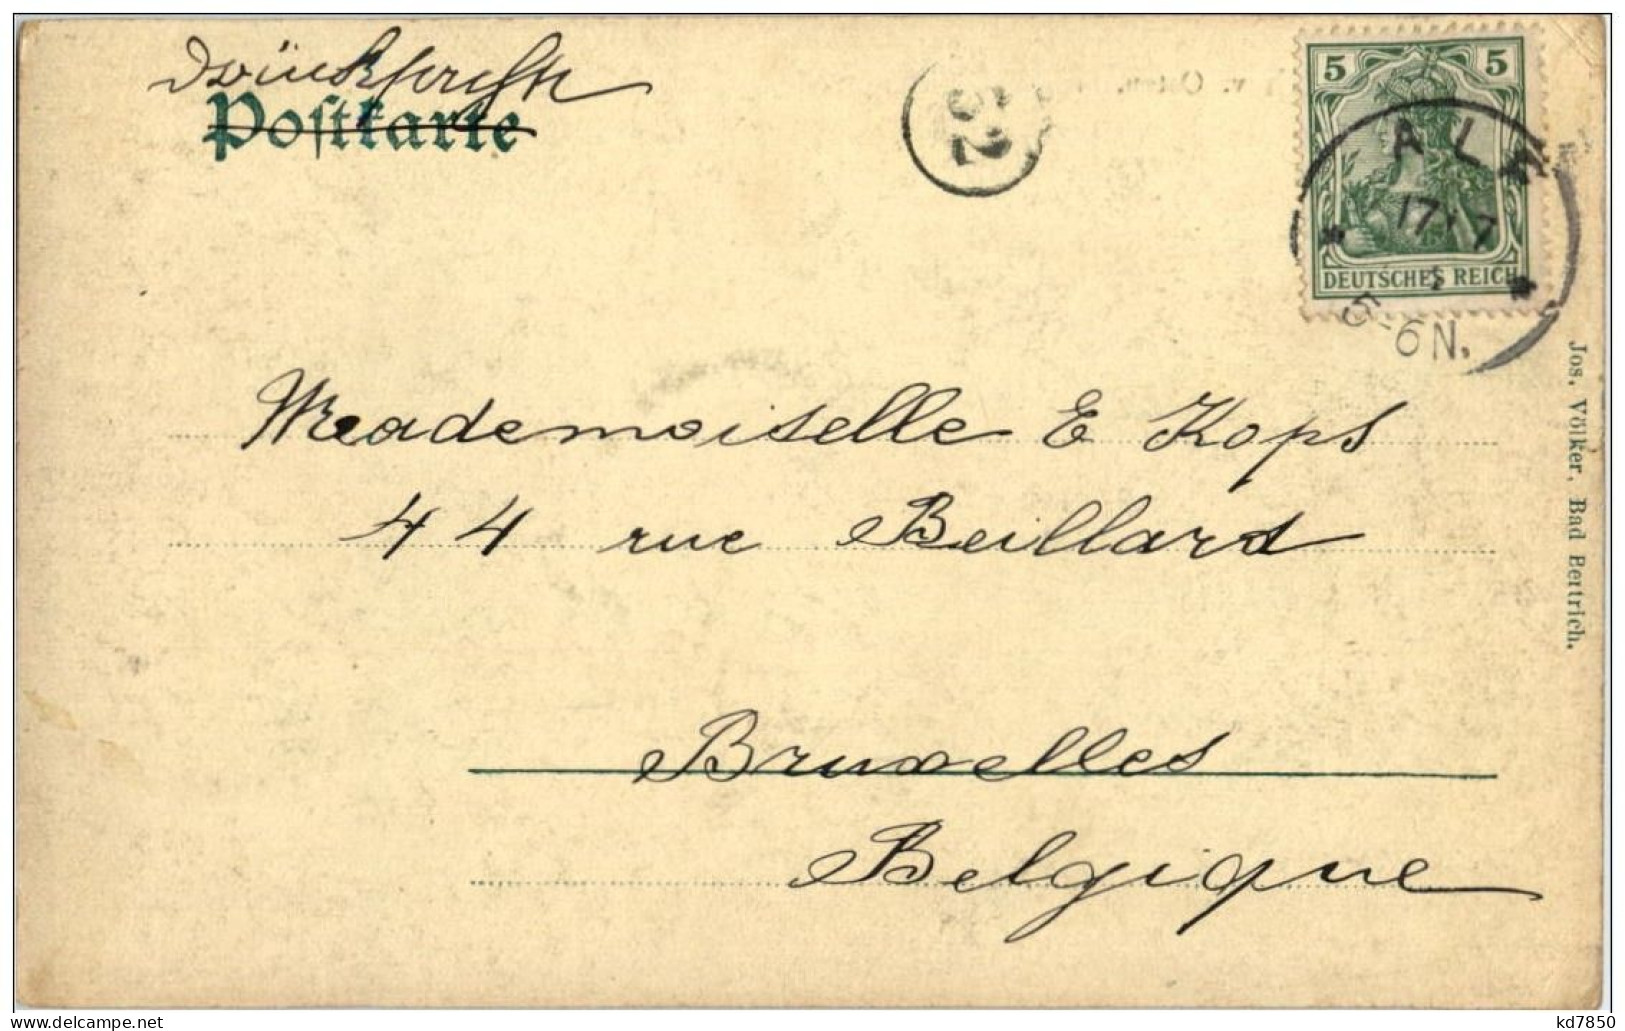 Drückschrift
Postkarte
52
v. Osten.
5 5
DEUTSCHES REICH
ALF
17 7
5-6N.
Mademoiselle E Kops
44 rue Beillard
Bruxelles
Belgique
Jos. Völker, Bad Bertrich.
kd7850